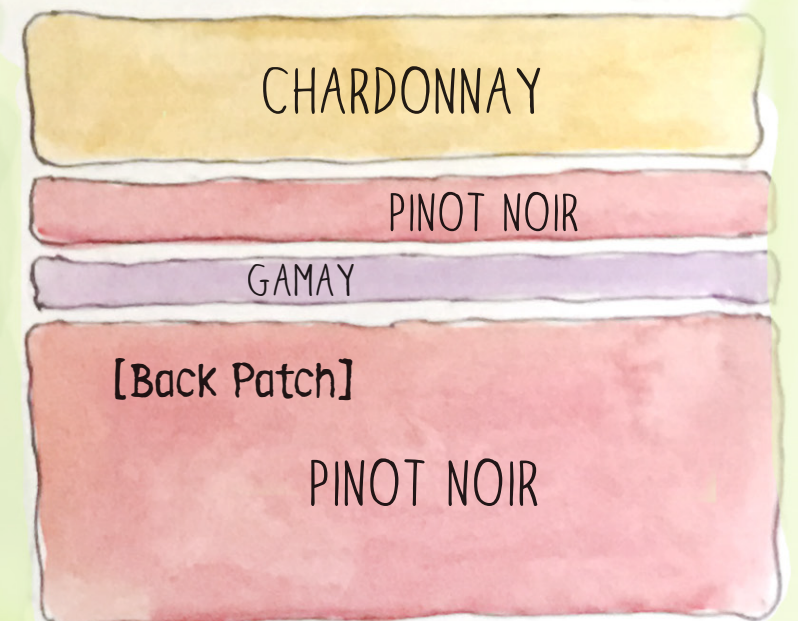 CHARDONNAY
PINOT NOIR
GAMAY
[Back Patch]
PINOT NOIR